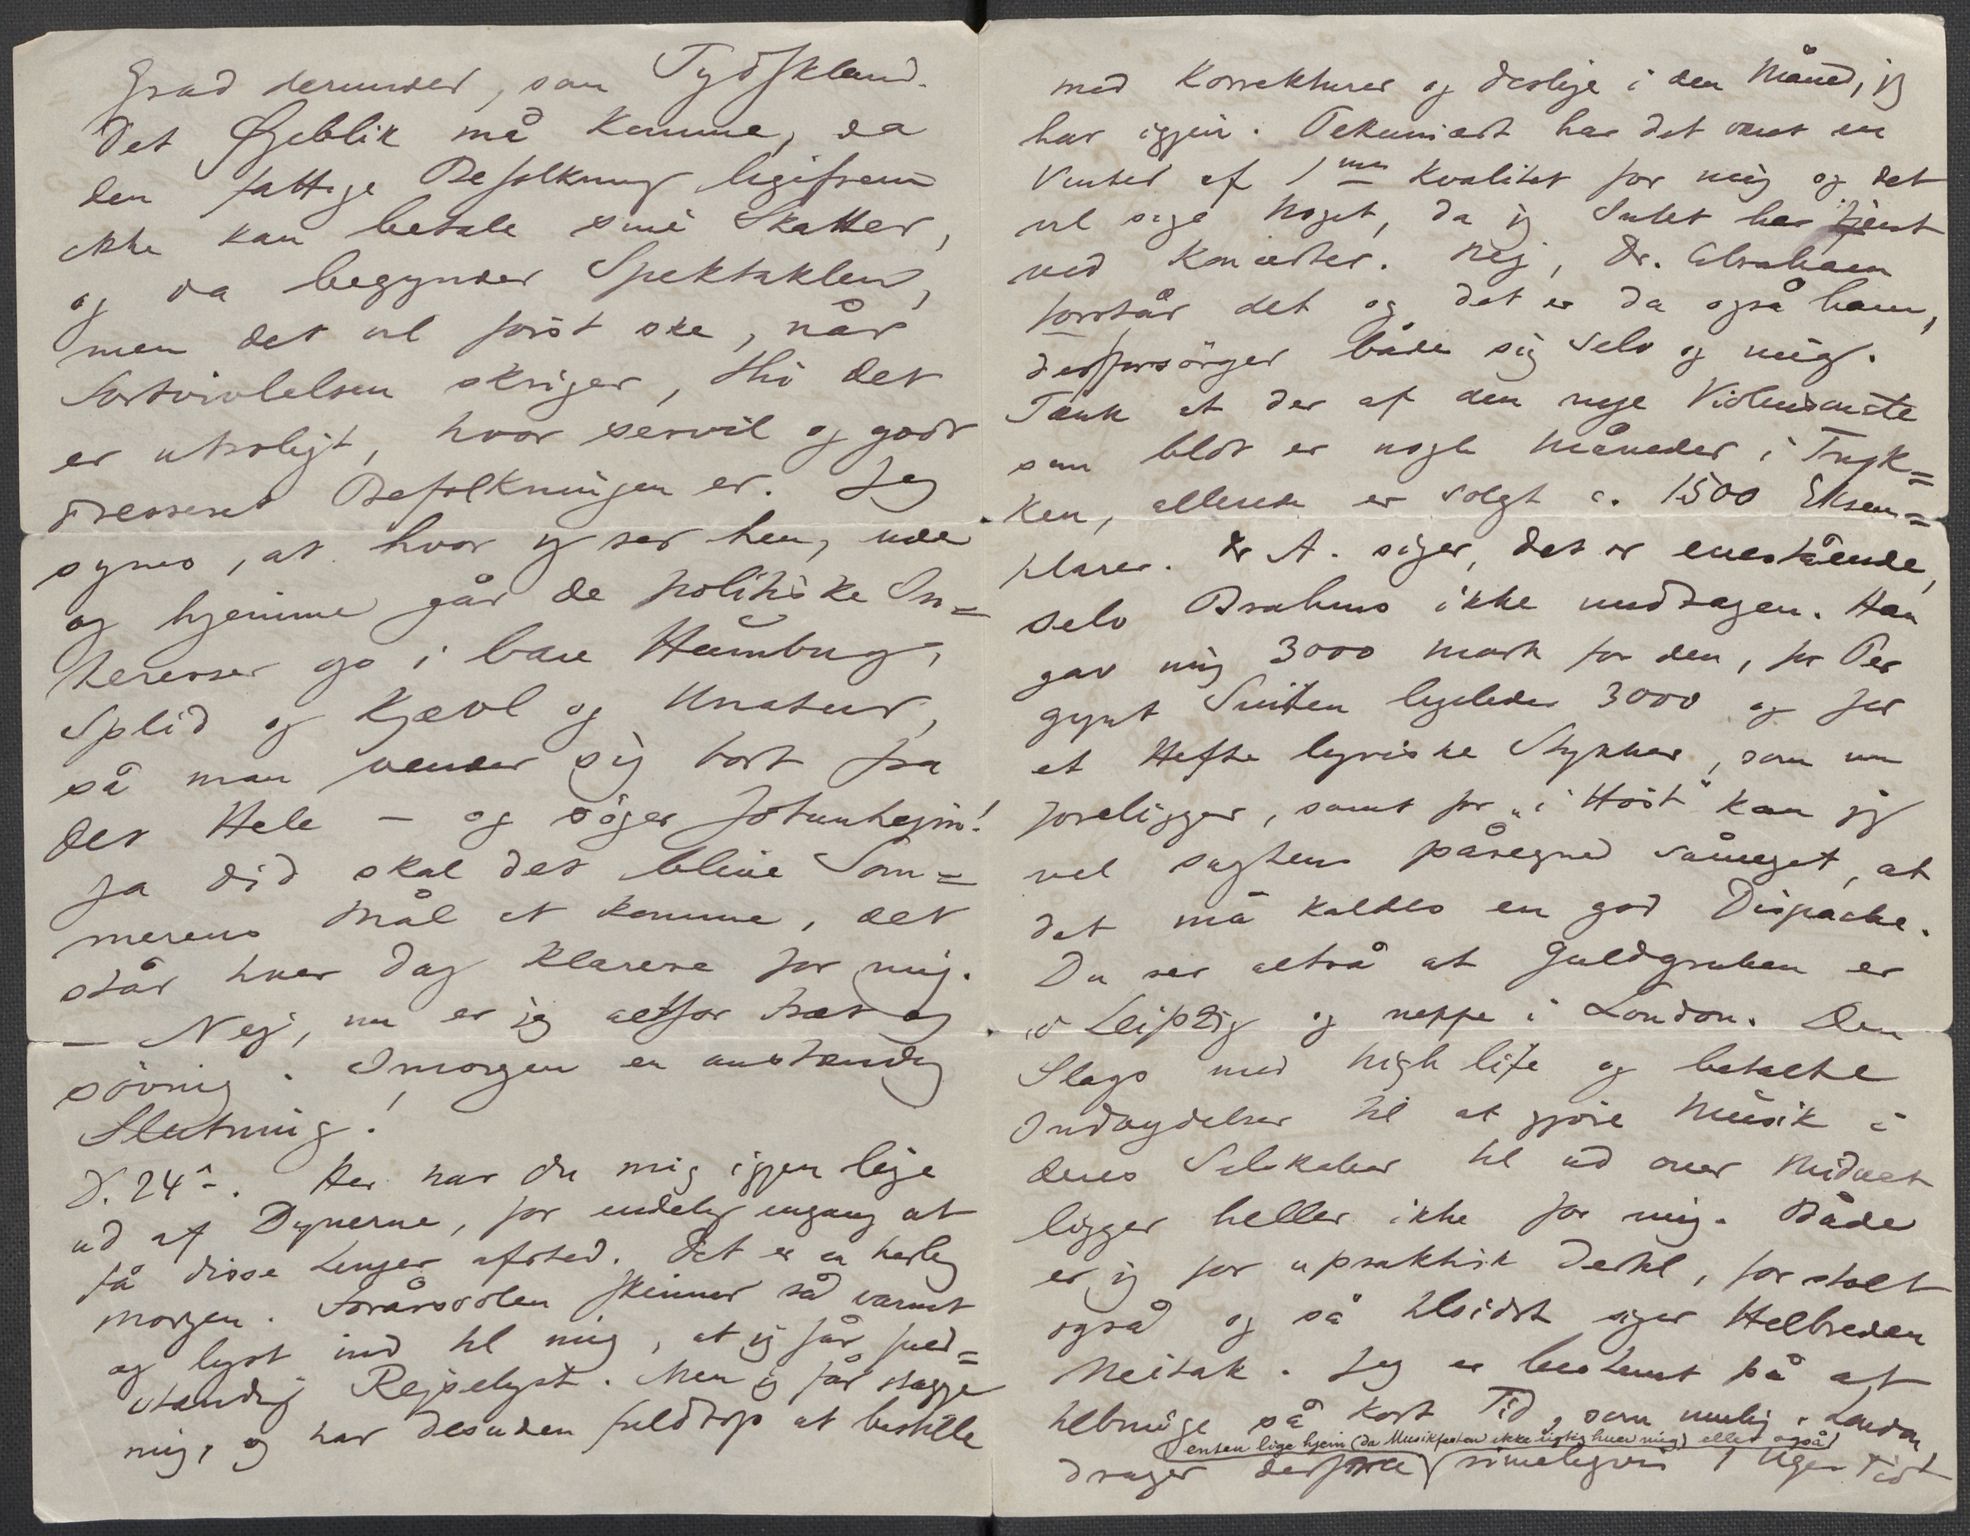 Grad derunder, som Tydskland.
Det Øjeblik må komme, da
den fattige Befolkning ligefrem
ikke kan betale sine Skatter,
og da begynder Spektaklen,
men det vil först ske, når
Fortvivlelsen skriger, thi det
er utroligt, hvor servil og godt
dresseret Befolkningen er. Jeg
synes, at hvor jeg ser hen, ude
og hjemme går de politiske In=
teresser op i bare Humbug,
Splid og Kjævl og Unatur,
så man vender sig bort fra
det Hele – og söger Jotunhejm!
Ja did skal det blive Som=
merens Mål at komme, det
står hver Dag klarere for mig.
– Nej, nu er jeg altfor træt og
sövnig. Imorgen en anstændig
Slutning!
D. 24de. Her har du mig igjen lige
ud af Dynerne, for endelig engang at
få disse Linjer afsted. Det er en herlig
Morgen. Forårssolen skinner så varmt
og lyst ind til mig, at jeg får fuld=
stændig Rejselyst. Men jeg får stagge
mig, og har desuden fuldtop at bestille
med Korrekturer og deslige i den Måned, jeg
har igjen. Pekuniært har det været en
Vinter af 1ma Kvalitet for mig og det
vil sige Noget, da jeg Intet har tjent
ved Koncerter. Nej, Dr. Abraham
forstår det og det er da også ham,
der forsörger både sig selv og mig.
Tænk at der af den nye Violinsonate
som blot er nogle Måneder i Tryk=
ken, allerede er solgt c. 1500 Eksem=
plarer. Dr A. siger, det er enestående,
selv Brahms ikke undtagen. Han
gav mig 3000 Mark for den, for Peer
Gynt Suiten ligeledes 3000 og for
et Hefte lyriske Stykker, som nu
foreligger, samt for "i Höst" kan jeg
vel sagtens påregne såmeget, at
det må kaldes en god Dispache.
Du ser altså at Guldgruben er
i Leipzig og neppe i London. Den
Slags med high life og betalte
Indbydelser til at gjöre Musik i
deres Selskaber til ud over Midnat
ligger heller ikke for mig. Både
er jeg for upraktisk dertil, for stolt
også og så tilsidst siger Helbreden
Neitak. Jeg er bestemt på at
tilbringe så kort Tid, som mulig i London,
enten lige hjem (da Musikfesten ikke rigtig huer mig) eller også
drager derfra rimeligvis 1 Uges Tid